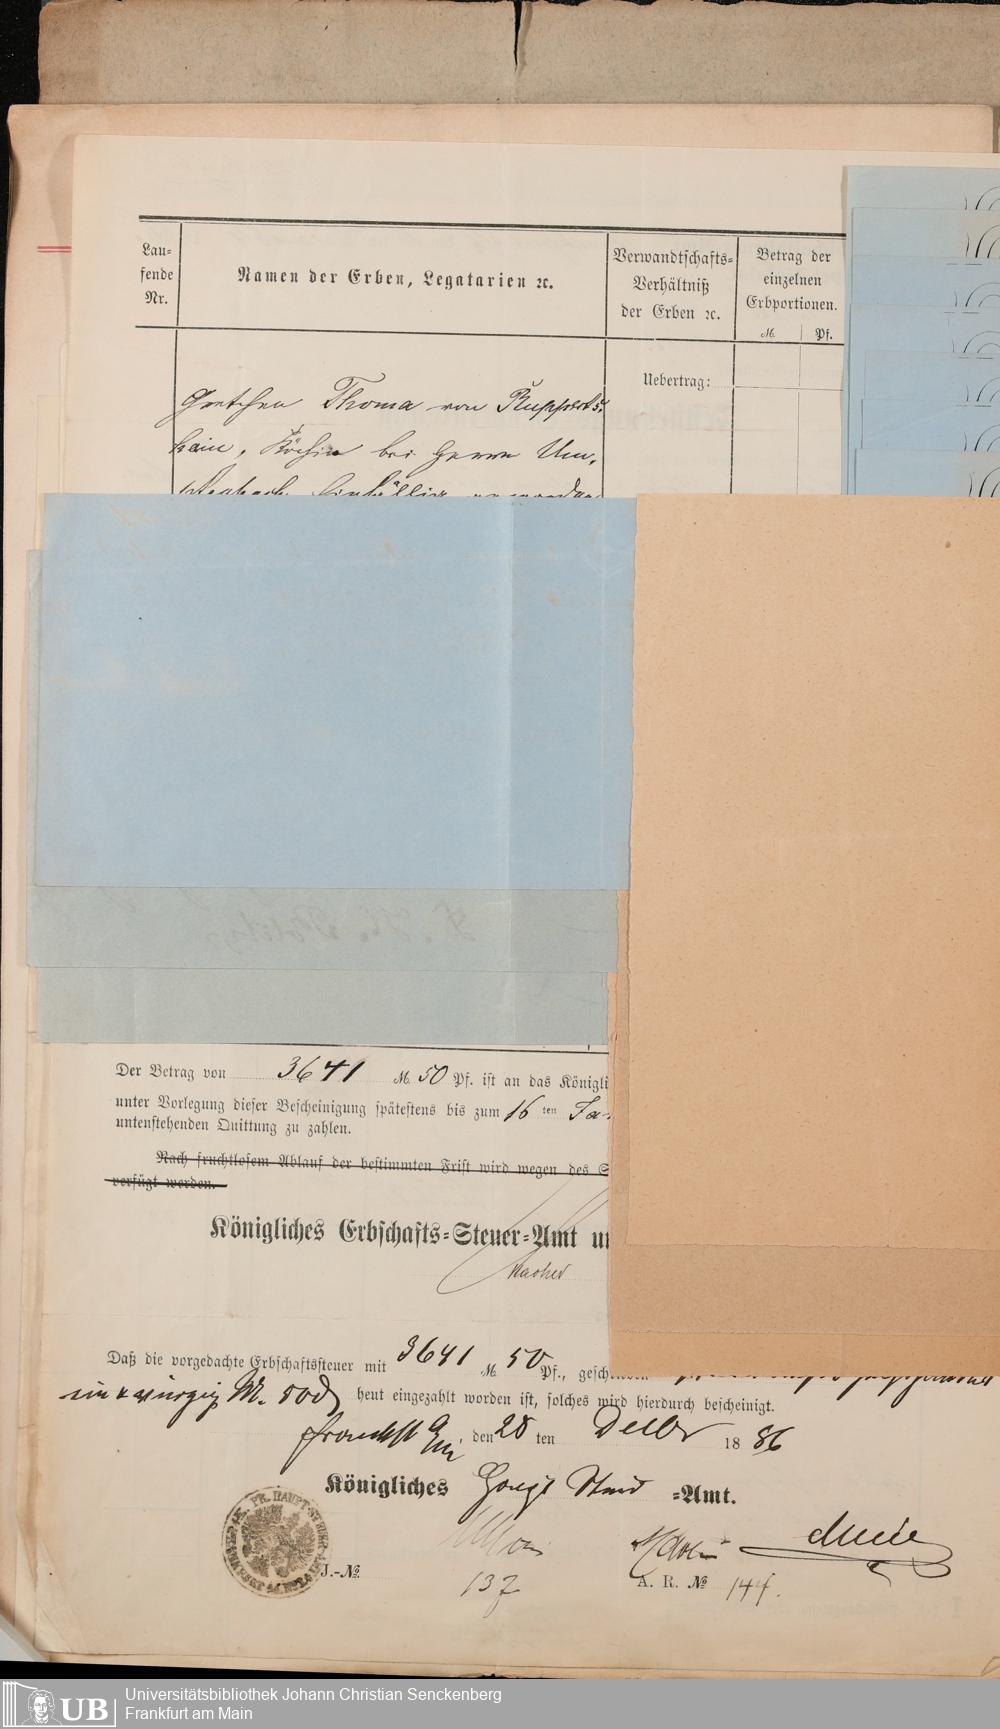 Lau=
fende
Nr.
Namen der Erben, Legatarien ꝛc.
Verwandtschafts=
Verhältniß
der Erben ꝛc.
Betrag der
einzelnen
Erbportionen.
M. Pf.
Uebertrag:
Gretchen Thoma von Rupperts-
hain, Köchin bei Herrn Um-
Der Betrag von 3641 M. 50 Pf. ist an das Königli
unter Vorlegung dieser Bescheinigung spätestens bis zum 16 ten Ja-
untenstehenden Quittung zu zahlen.
Nach fruchtlosem Ablauf der bestimmten Frist wird wegen des S
verfügt werden.
Königliches Erbschafts=Steuer=Amt un
Daß die vorgedachte Erbschaftssteuer mit 3641 M. 50 Pf., gesch
M. 50 heut eingezahlt worden ist, solches wird hierdurch bescheinigt.
den 28 ten Decbr 18 86
Königliches Haupt Steuer =Amt.
J.-№ 137
A. R. № 144.
UB
Universitätsbibliothek Johann Christian Senckenberg
Frankfurt am Main